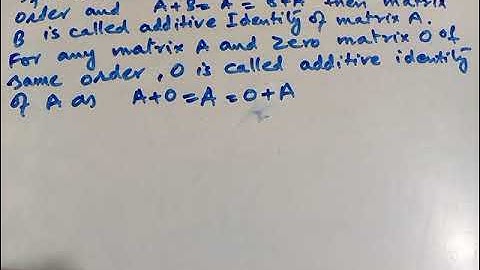 order and A+B = A = B+A then matrix
B is called additive Identity of matrix A.
For any matrix A and Zero matrix O of
same order, O is called additive identity
of A as A+O = A = O+A